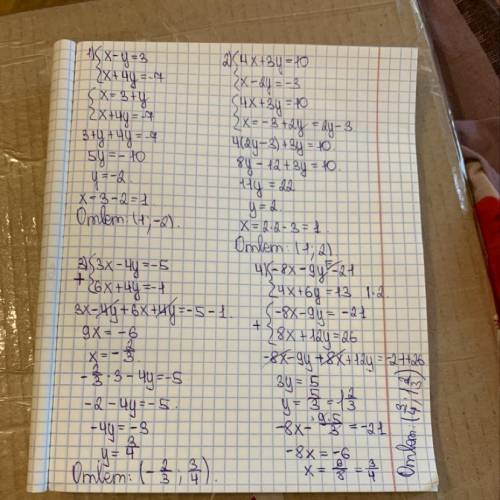 1) { x-y=3
x+4y=-7
{ x=3+y
x+4y=-7
3+y+4y=-7
5y=-10
y=-2
x=3-2=1
Ответ: (1; -2).
2) { 4x+3y=10
x-2y=-3
{ 4x+3y=10
x=-3+2y=2y-3
4(2y-3)+3y=10
8y-12+3y=10.
11y=22
y=2
x=2·2-3=1.
Ответ: (1; 2)
3) { 3x-4y=-5
+ 6x+4y=-1
3x-4y+6x+4y=-5-1.
9x=-6
x=-2/3
-2/3·3-4y=-5
-2-4y=-5.
-4y=-3
y=3/4
Ответ: (-2/3; 3/4).
4) { -8x-9y=-21
4x+6y=13 |·2.
+ { -8x-9y=-21
8x+12y=26
-8x-9y+8x+12y=-21+26
3y=5
y=5/3=1 2/3
-8x-9·5/3=-21
-8x=-6
x=6/8=3/4
Ответ: (3/4; 1 2/3)